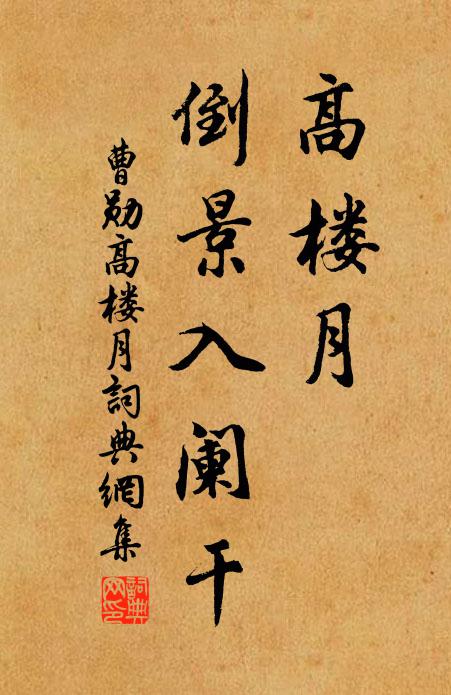 高楼月
倒景入阑干
曹勋高楼月詞典網集
詞典
网印